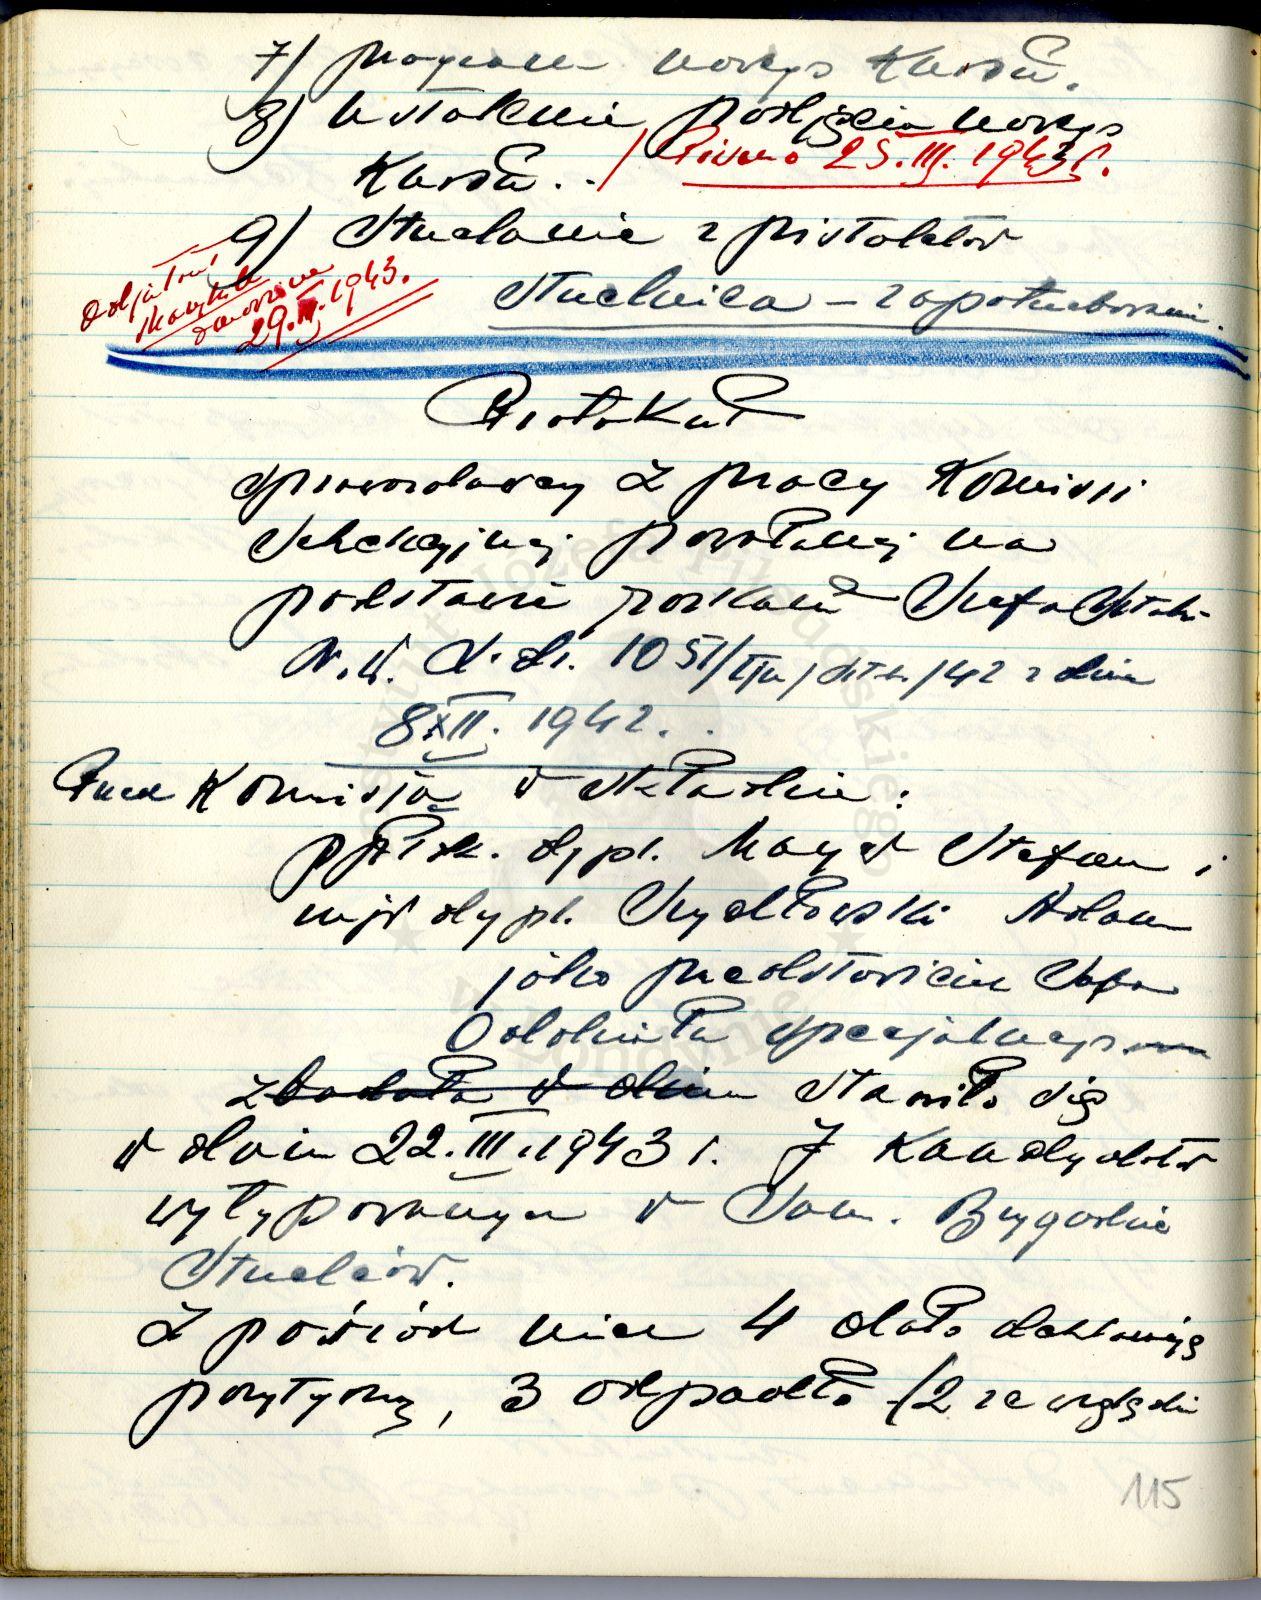 7) program nowego Kursu.
8) ustalenie podjęcia nowego
Kursu.. / Pismo 25.III.1943r.
9) Strzelanie z pistoletów
Strzelnica – zapotrzebowanie.
29.III.1943.
Protokuł
sprawozdawczy z pracy Komisji
Selekcyjnej powołanej na
podstawie rozkazu Szefa Sztabu
N.W. L.dz. 1051/ /42 z dnia
8XII. 1942.
Przed Komisją w składzie:
ppłk. dypl. Mayer Stefan i
mjr dypl. Szydłowski Adam
jako przedstawiciel Szefa
Oddziału Specjalnego
zbadała w dniu stawiło się
w dniu 22.III.1943 r. 7 kandydatów
wytypowanych w Sam. Brygadzie
Strzelców.
Z pośród nich 4 dało deklarację
pozytywną, 3 odpadło (2 ze względu
115
józefa Piłsudskiego
w Londynie